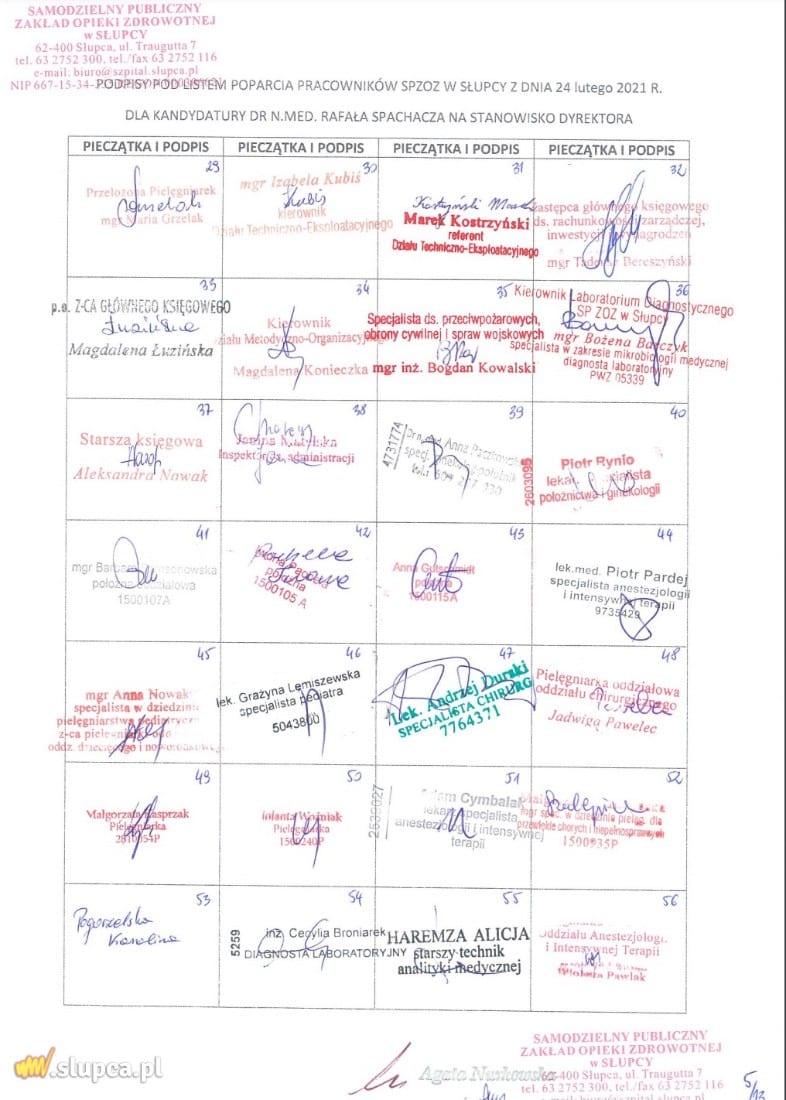 SAMODZIELNY PUBLICZNY
ZAKŁAD OPIEKI ZDROWOTNEJ
w SŁUPCY
62-400 Słupca, ul. Traugutta 7
tel. 63 2752 300, tel./fax 63 2752 116
e-mail: biuro@szpital.slupca.pl
NIP 667-15-34-
PODPISY POD LISTEM POPARCIA PRACOWNIKÓW SPZOZ W SŁUPCY Z DNIA 24 lutego 2021 R.
DLA KANDYDATURY DR N.MED. RAFAŁA SPACHACZA NA STANOWISKO DYREKTORA
PIECZĄTKA I PODPIS PIECZĄTKA I PODPIS PIECZĄTKA I PODPIS PIECZĄTKA I PODPIS
29
Przełożona Pielęgniarek
mgr Maria Grzelak
30
mgr Izabela Kubiś
Kubiś
kierownik
Działu Techniczno-Eksploatacyjnego
31
Kostrzyński Marek
Marek Kostrzyński
referent
Działu Techniczno-Eksploatacyjnego
32
zastępca głównego księgowego
ds. rachunkowości zarządczej,
inwestycji i wynagrodzeń
mgr Tadeusz Bereszyński
33
p.o. Z-CA GŁÓWNEGO KSIĘGOWEGO
Łuzińska
Magdalena Łuzińska
34
Kierownik
Działu Metodyczno-Organizacyjnego
Magdalena Konieczka
35
Specjalista ds. przeciwpożarowych,
obrony cywilnej i spraw wojskowych
mgr inż. Bogdan Kowalski
36
Kierownik Laboratorium Diagnostycznego
SP ZOZ w Słupcy
mgr Bożena Barczyk
specjalista w zakresie mikrobiologii medycznej
diagnosta laboratoryjny
PWZ 05339
37
Starsza księgowa
Aleksandra Nowak
38
Janina
Inspektor ds. administracji
39
4731774
Dr n. med. Anna
specj. ginekolog położnik
40
2603095
Piotr Rynio
lekarz specjalista
położnictwa i ginekologii
41
mgr
położna oddziałowa
1500107A
42
położna
1500105 A
43
Anna Gutschmidt
położna
1500115A
44
lek.med. Piotr Pardej
specjalista anestezjologii
i intensywnej terapii
9735429
45
mgr Anna Nowak
specjalista w dziedzinie
pielęgniarstwa pediatrycznego
z-ca pielęgniarki
oddz. dziecięcego i noworodkowego
46
lek. Grażyna Lemiszewska
specjalista pediatra
5043800
47
Lek. Andrzej Duraki
SPECJALISTA CHIRURG
7764371
48
Pielęgniarka oddziałowa
oddziału chirurgicznego
Jadwiga Pawelec
49
Małgorzata Kasprzak
Pielęgniarka
2810054P
50
Jolanta Woźniak
Pielęgniarka
1500240P
51
2635027
Adam Cymbalak
lekarz specjalista
anestezjologii i intensywnej
terapii
52
mgr spec. w dziedzinie pielęg. dla
przewlekle chorych i niepełnosprawnych
1500935P
53
Pogorzelska
Karolina
54
5259
inż. Cecylia Broniarek
DIAGNOSTA LABORATORYJNY
55
HAREMZA ALICJA
starszy technik
analityki medycznej
56
Oddziału Anestezjologii
i Intensywnej Terapii
Wioleta Pawlak
.slupca.pl
Agata
SAMODZIELNY PUBLICZNY
ZAKŁAD OPIEKI ZDROWOTNEJ
w SŁUPCY
62-400 Słupca, ul. Traugutta 7
tel. 63 2752 300, tel./fax 63 2752 116
5/13